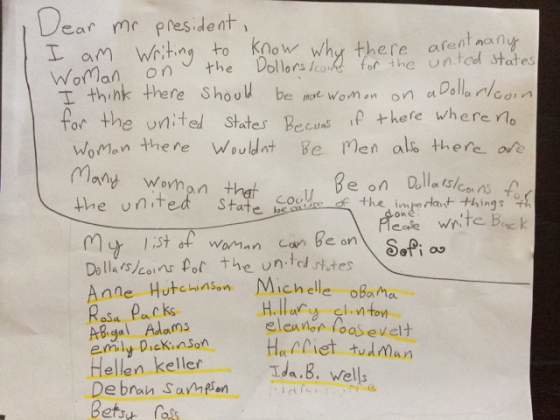 Dear mr president,
I am writing to know why there arent many
woman on the Dollors/coins for the united states
I think there should be more woman on a Dollar/coin
for the united states Becuas if there where no
woman there wouldnt Be Men also there are
Many woman that could Be on Dollars/coins for
the united state because of the important things th
done.
Please write Back
Sofia
My list of woman can Be on
Dollars/coins for the united states
Anne Hutchinson
Rosa Parks
Abigal Adams
emily Dickinson
Hellen keller
Debrah Sampson
Betsy ross
Michelle obama
Hillary clinton
eleanor roosevelt
Harriet tudman
Ida.B. wells